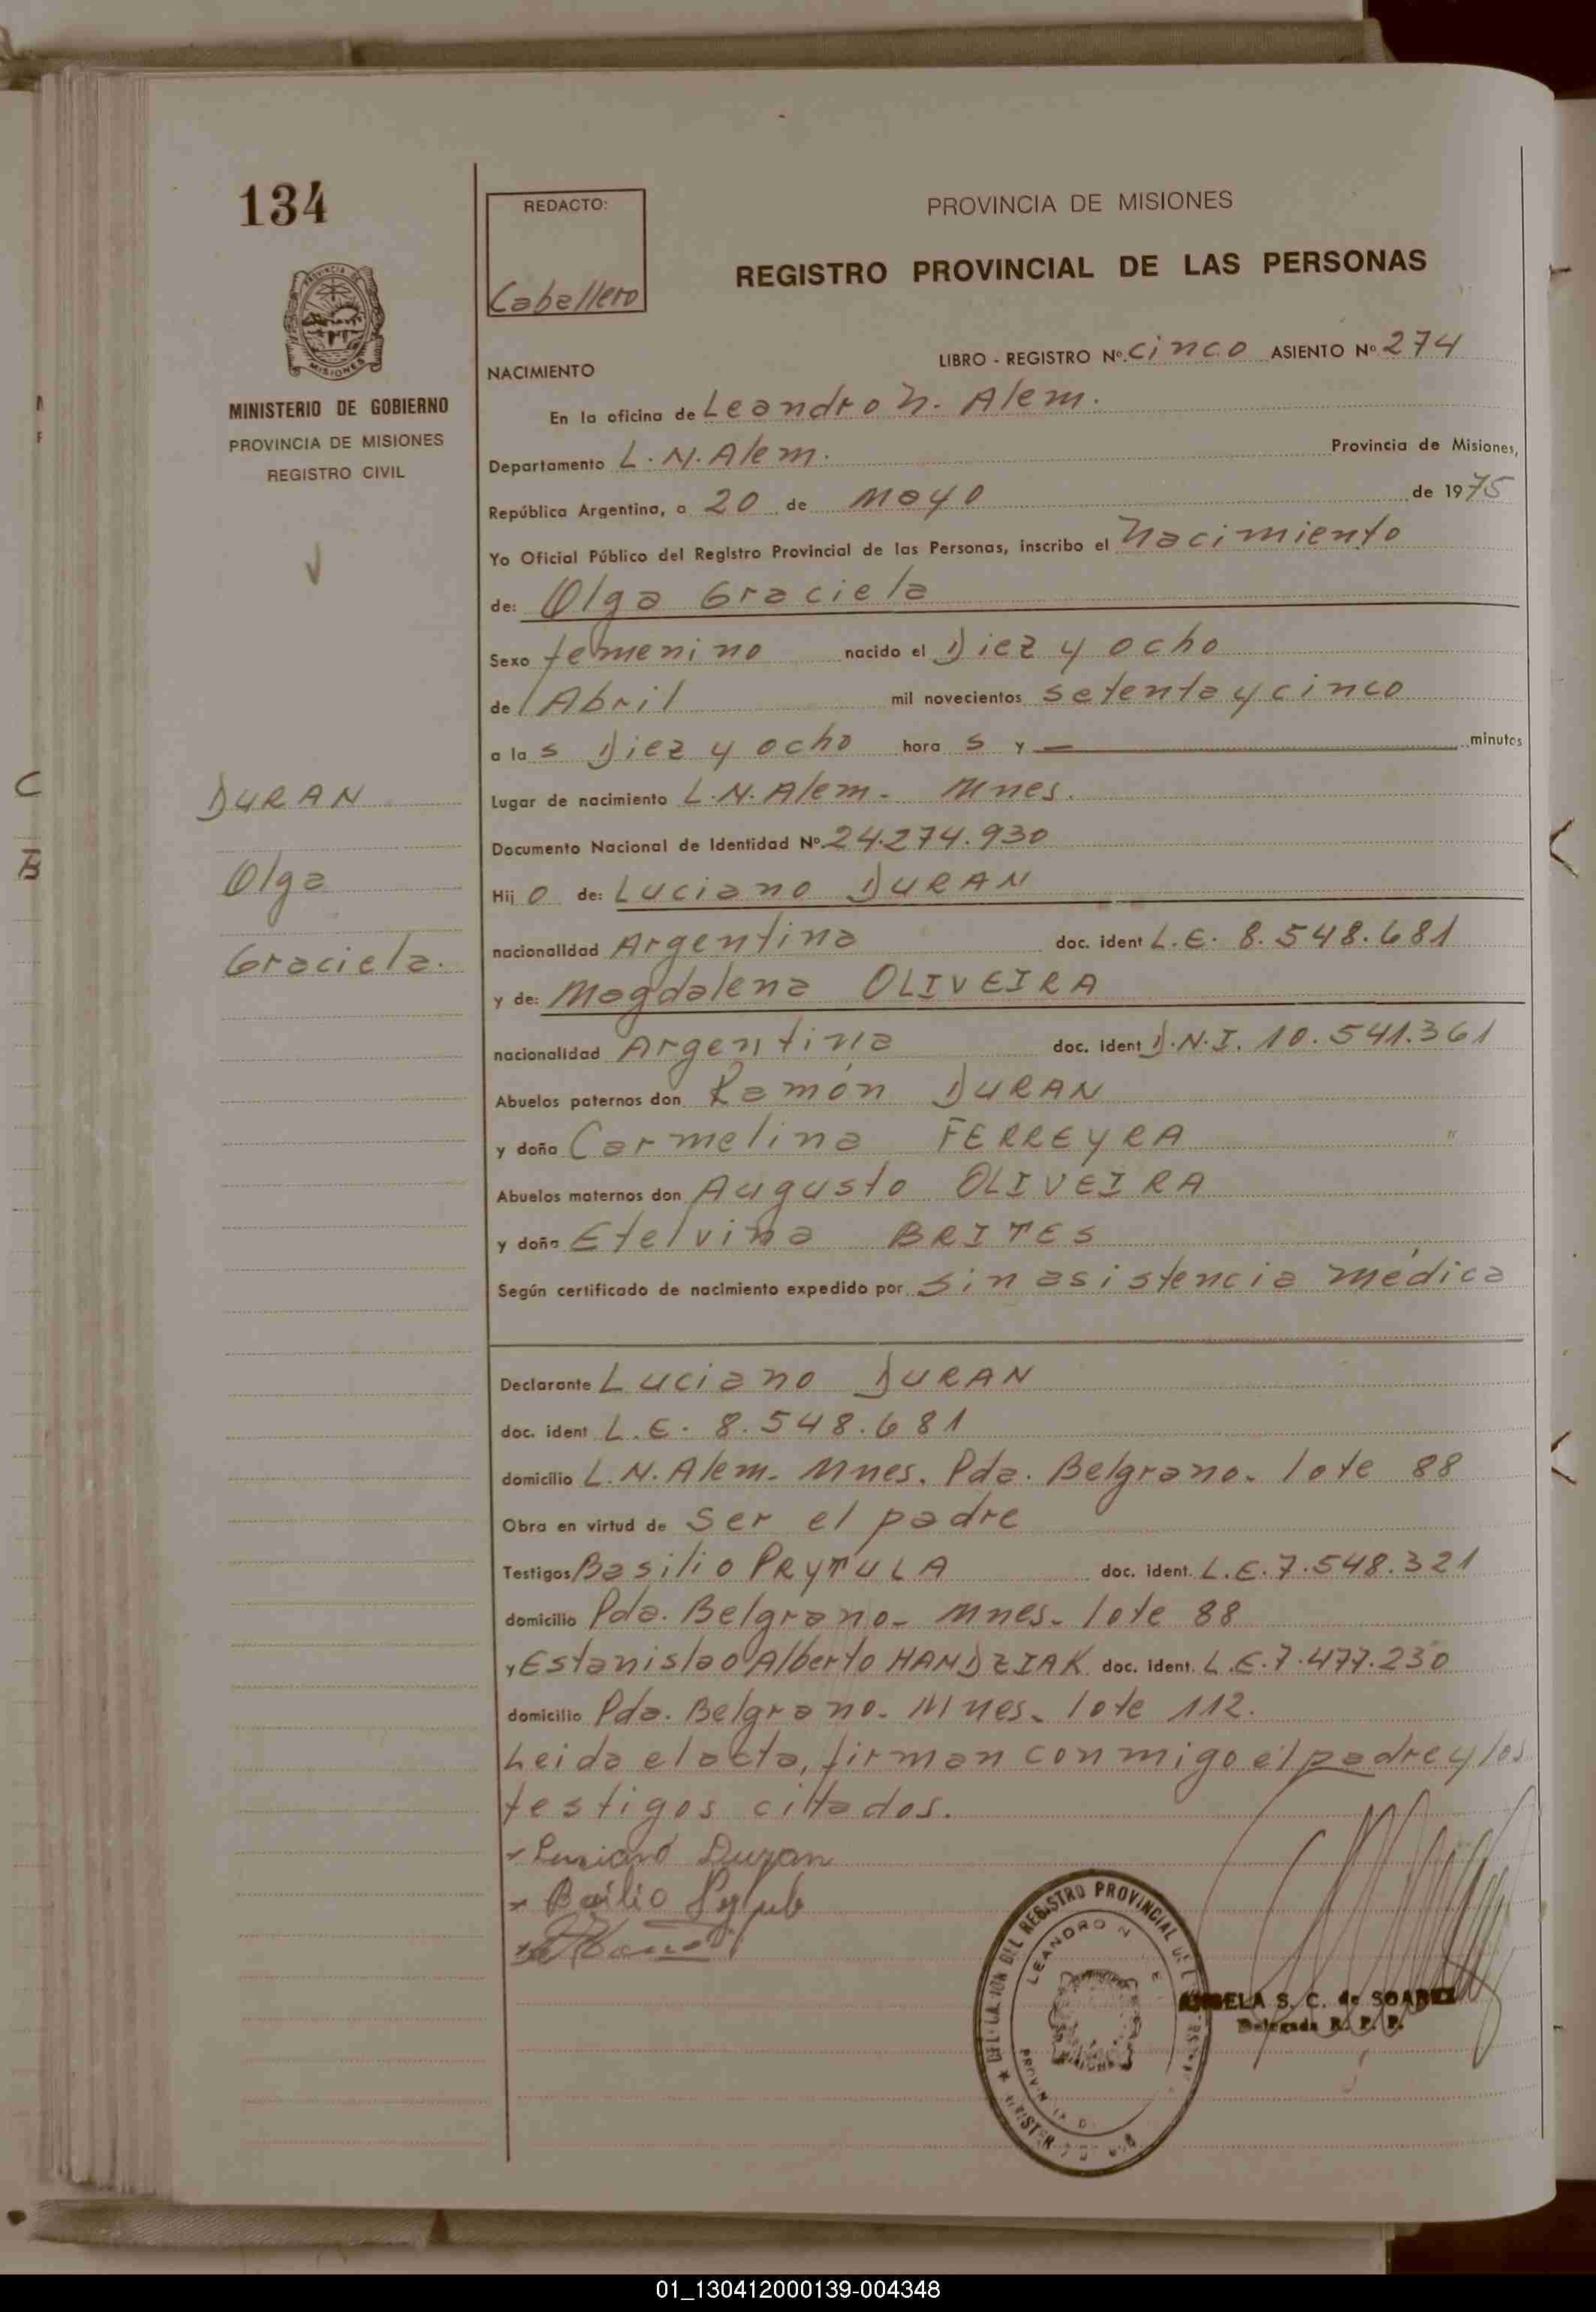 134
REDACTO:
Caballero
PROVINCIA DE MISIONES
REGISTRO PROVINCIAL DE LAS PERSONAS
PROVINCIA DE
MISIONES
MINISTERIO DE GOBIERNO
PROVINCIA DE MISIONES
REGISTRO CIVIL
LIBRO - REGISTRO Nº. cinco ASIENTO Nº 274
NACIMIENTO
En la oficina de Leandro N. Alem.
Departamento L.N. Alem. Provincia de Misiones,
República Argentina, a 20 de Mayo de 1975
Yo Oficial Público del Registro Provincial de las Personas, inscribo el Nacimiento
de: Olga Graciela
Sexo femenino nacido el Diez y ocho
de Abril mil novecientos setenta y cinco
a las Diez y ocho hora s y — minutos
DURAN
Olga
Graciela.
Lugar de nacimiento L.N. Alem - Mnes.
Documento Nacional de Identidad Nº. 24.274.930
Hij o de: Luciano DURAN
nacionalidad Argentina doc. ident L.E. 8.548.681
y de: Magdalena OLIVEIRA
nacionalidad Argentina doc. ident D.N.I. 10.541.361
Abuelos paternos don Ramón DURAN
y doña Carmelina FERREYRA "
Abuelos maternos don Augusto OLIVEIRA
y doña Etelvina BRITES
Según certificado de nacimiento expedido por sin asistencia médica
Declarante Luciano DURAN
doc. ident L.E. 8.548.681
domicilio L.N. Alem - Mnes. Pda. Belgrano - lote 88
Obra en virtud de ser el padre
Testigos Basilio PRYTULA doc. ident. L.E. 7.548.321
domicilio Pda. Belgrano - Mnes - lote 88
y Estanislao Alberto HANDZIAK doc. ident. L.E. 7.477.230
domicilio Pda. Belgrano - Mnes - lote 112.
Leida el acta, firman conmigo el padre y los
testigos citados.
Luciano Duran
Basilio
DEL REGISTRO PROVINCIAL DE
LEANDRO N
ANGELA S. C. de SOAREZ
Delegada R. P. P.
01_130412000139-004348